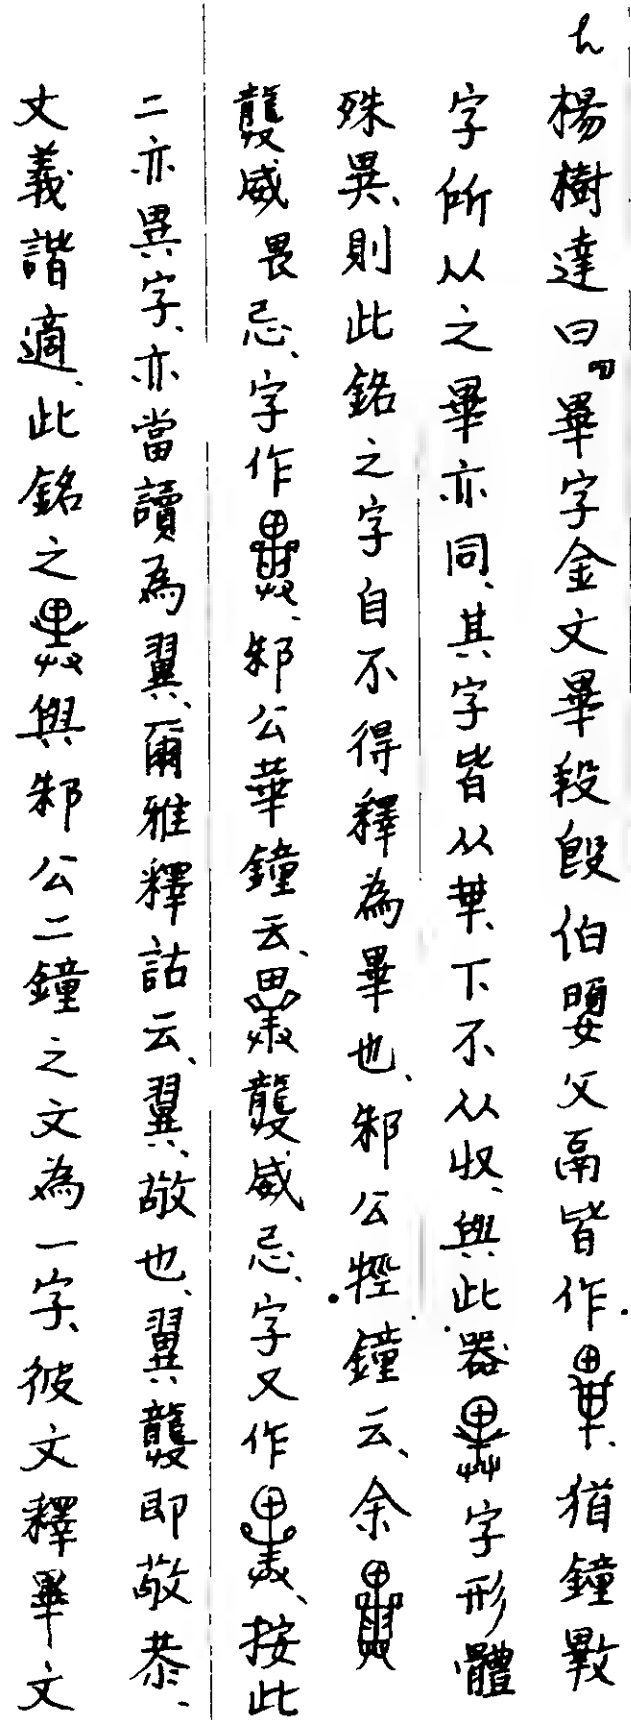 楊樹達曰畢字金文畢段𣪘伯嬰父鬲皆作、猶鐘斁
字所从之畢亦同、其字皆从𠦒、下不从収、與此器字形體
殊異、則此銘之字自不得釋為畢也、邾公牼鐘云、余
龔威畏忌、字作、邾公華鐘云、龔威忌、字又作、按此
二亦異字、亦當讀為翼、爾雅釋詁云、翼、敬也、翼龔即敬恭、
文義諧適、此銘之與邾公二鐘之文為一字、彼文釋畢文